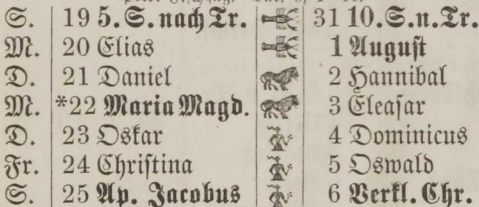 S. 19 5. S. nach Tr. 31 10. S. n. Tr.
M. 20 Elias 1 August
D. 21 Daniel 2 Hannibal
M. *22 Maria Magd. 3 Eleasar
D. 23 Oskar 4 Dominicus
Fr. 24 Christina 5 Oswald
S. 25 Ap. Jacobus 6 Verkl. Chr.